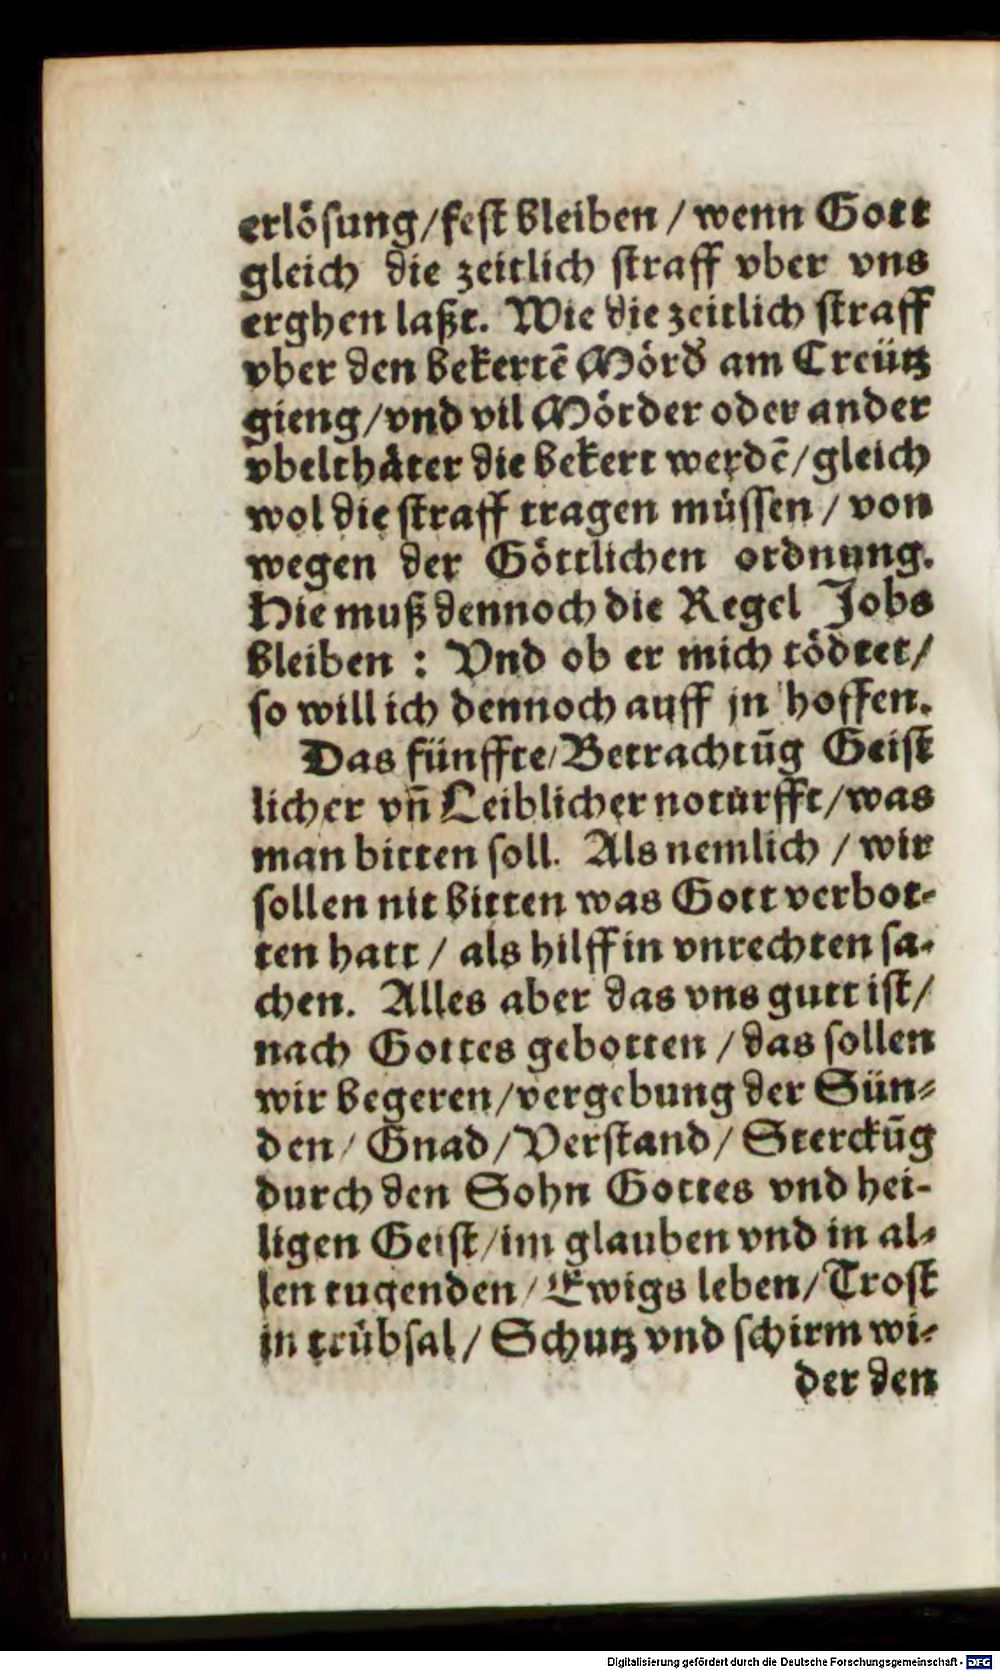 erlösung/fest bleiben / wenn Gott
gleich die zeitlich straff vber vns
erghen laßt. Wie die zeitlich straff
vber den bekertẽ Mörd am Creütz
gieng/vnd vil Mörder oder ander
vbelthäter die bekert werdẽ/gleich
wol die straff tragen müssen / von
wegen der Göttlichen ordnung.
Hie muß dennoch die Regel Jobs
bleiben : Vnd ob er mich tödtet/
so will ich dennoch auff jn hoffen.
Das fünffte/Betrachtũg Geist
licher vñ Leiblicher noturfft/was
man bitten soll. Als nemlich / wir
sollen nit bitten was Gott verbot-
ten hatt / als hilff in vnrechten sa-
chen. Alles aber das vns gutt ist/
nach Gottes gebotten / das sollen
wir begeren/vergebung der Sün-
den/ Gnad/Verstand/ Sterckũg
durch den Sohn Gottes vnd hei-
ligen Geist/im glauben vnd in al-
len tugenden/Ewigs leben/Trost
in trübsal/ Schutz vnd schirm wi-
der den
Digitalisierung gefördert durch die Deutsche Forschungsgemeinschaft - DFG